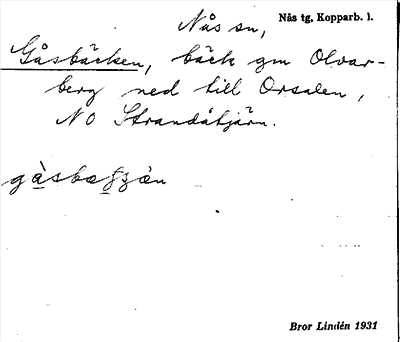 Nås sn, Nås tg, Kopparb. l.
Gåsbäcken, bäck gm Olvar-
berg ned till Orsalen,
NO Strandåtjärn.
Bror Lindén 1931